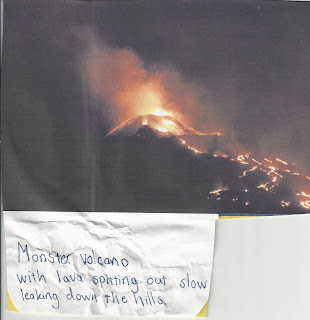 Monster Volcano
with lava spitting out slow
leaking down the hills.